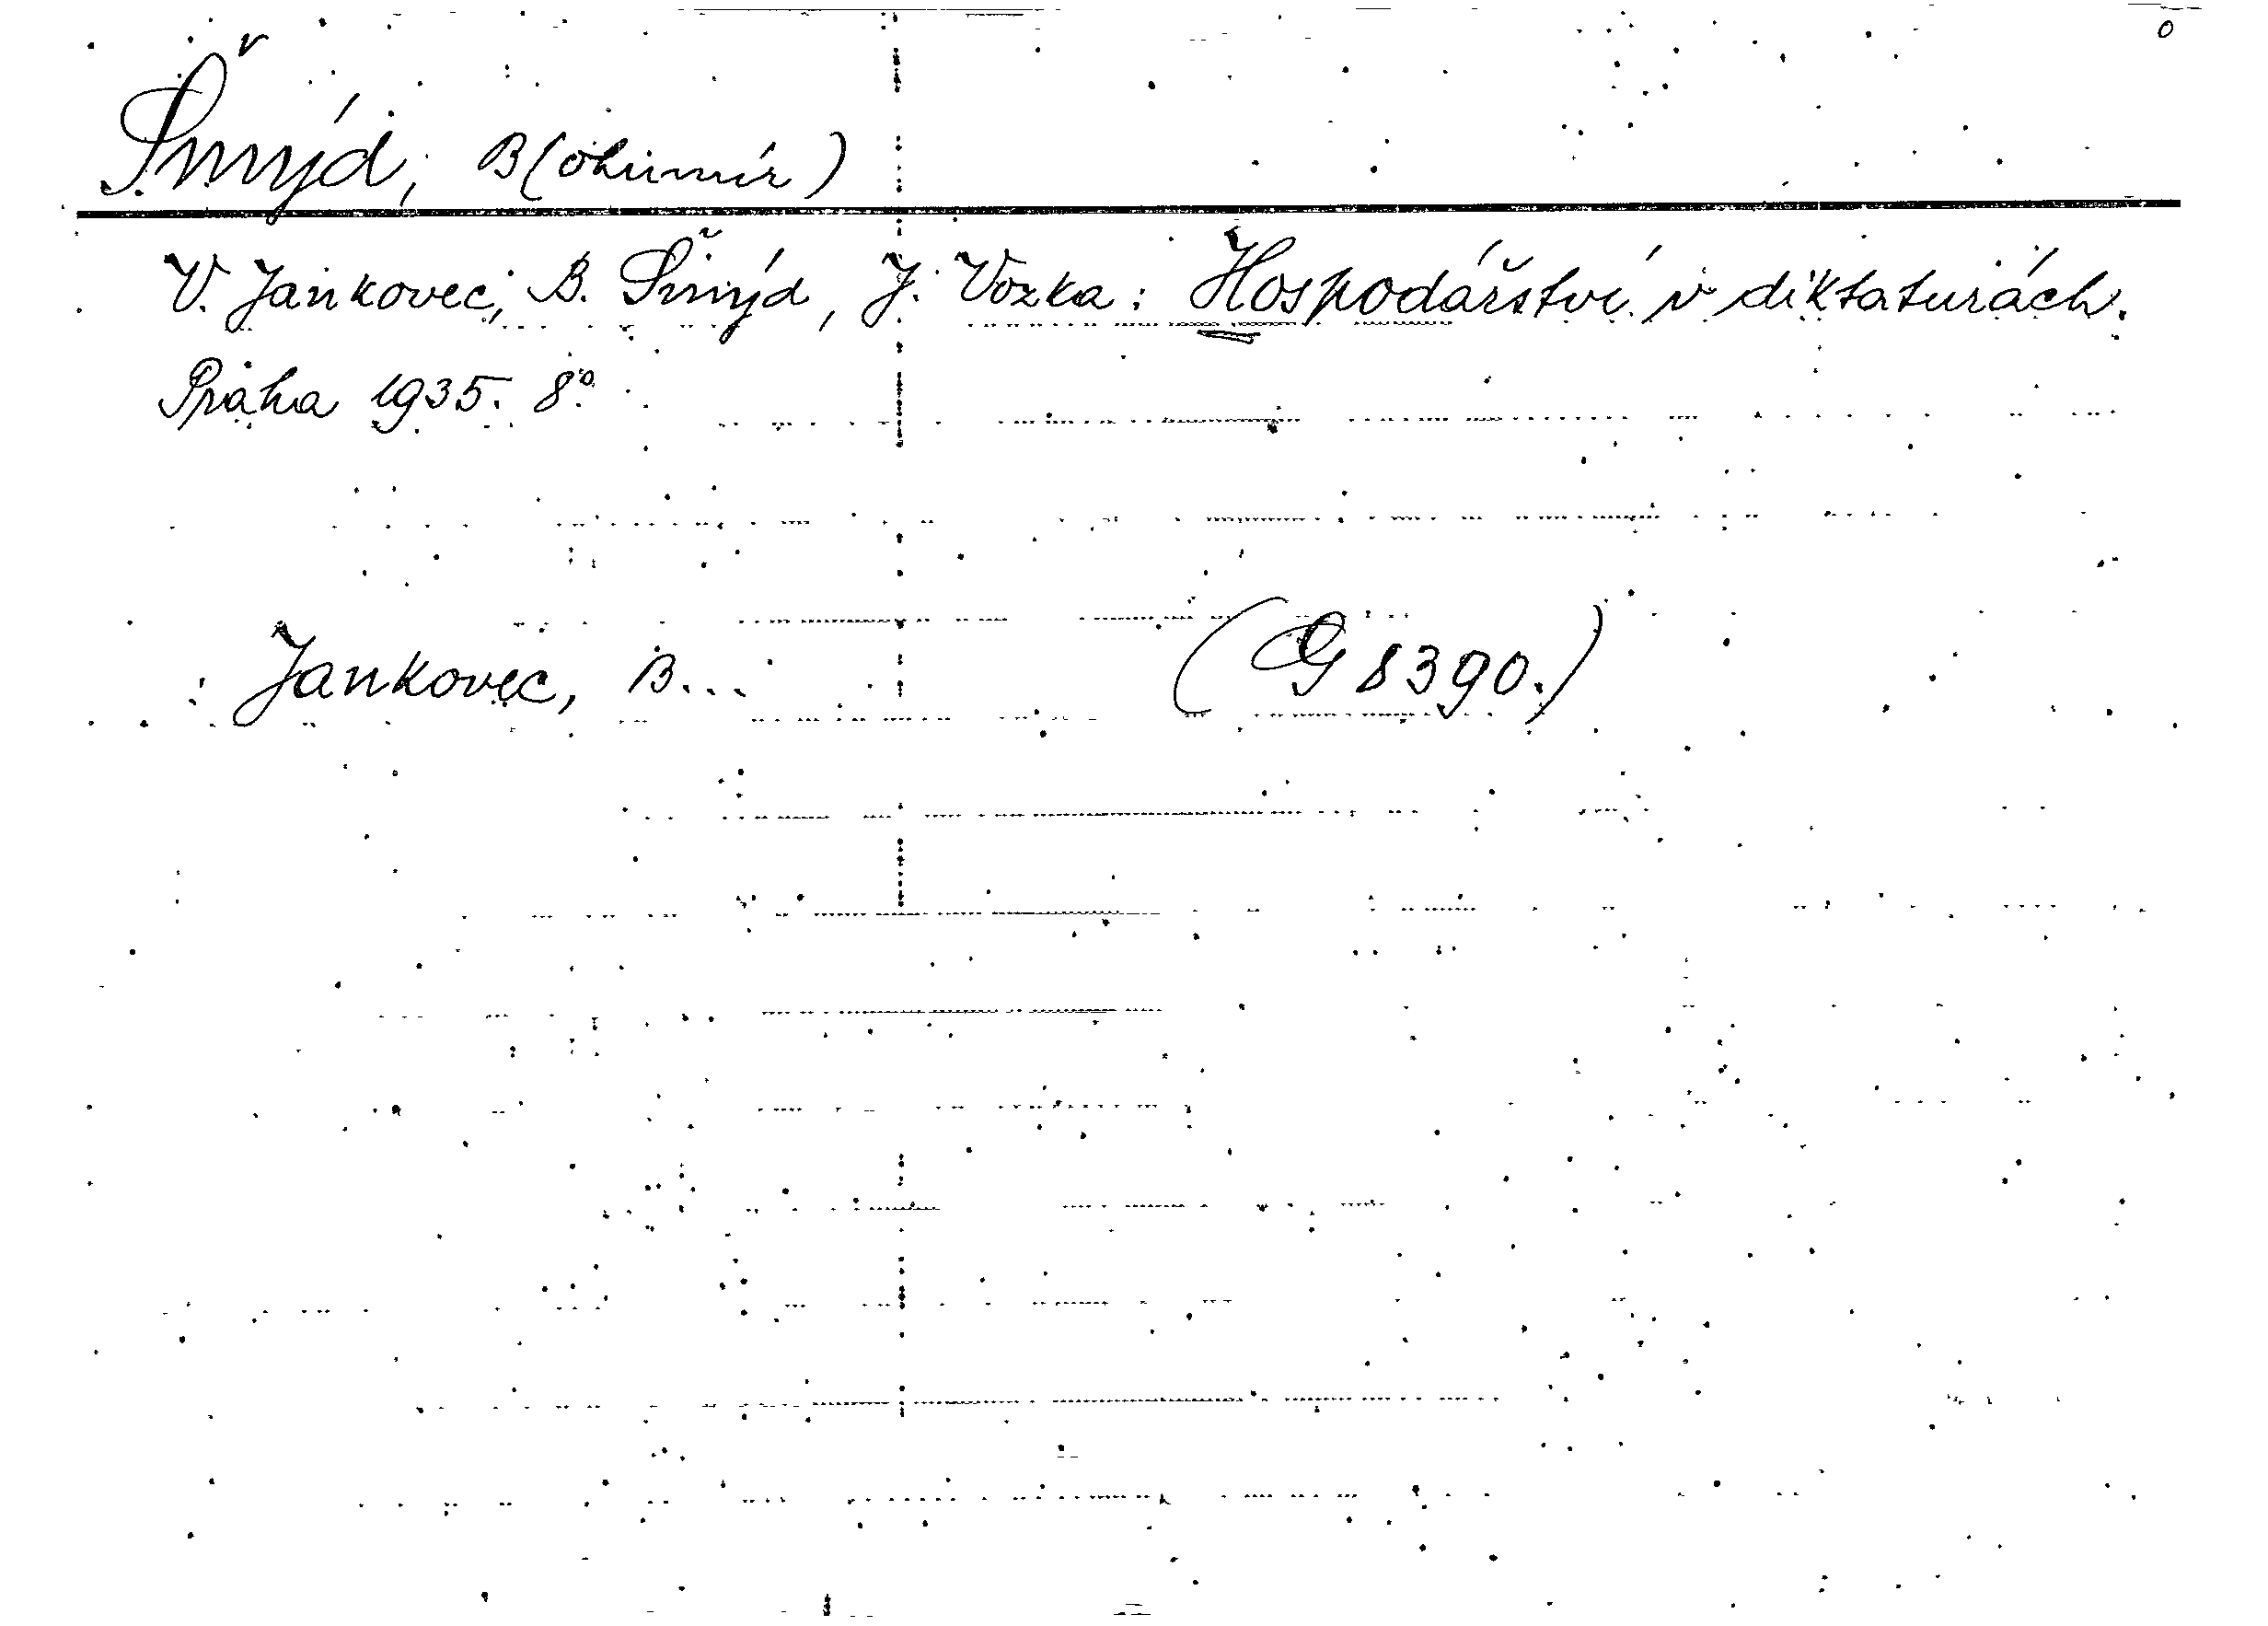 Šmýd, B(ohumír)
V. Jankovec, B. Šmýd, J. Vozka: Hospodářství v diktaturách.
Praha 1935. 8°.
Jankovec, B... (G 8390.)